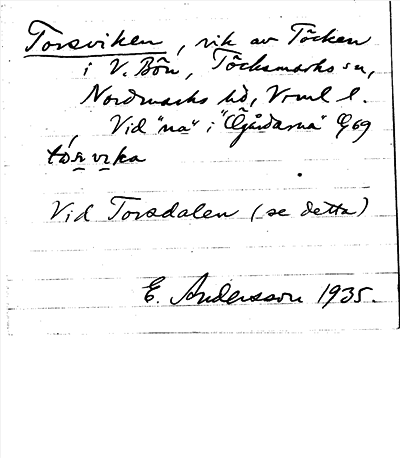 Torsviken, vik av Töcken
i V. Bön, Töcksmarks sn,
Nordmarks hd, Vrml l.
Vid "na" i "Ögårdarna" G 69
tórs vika
Vid Torsdalen (se detta)
E. Andersson 1935.